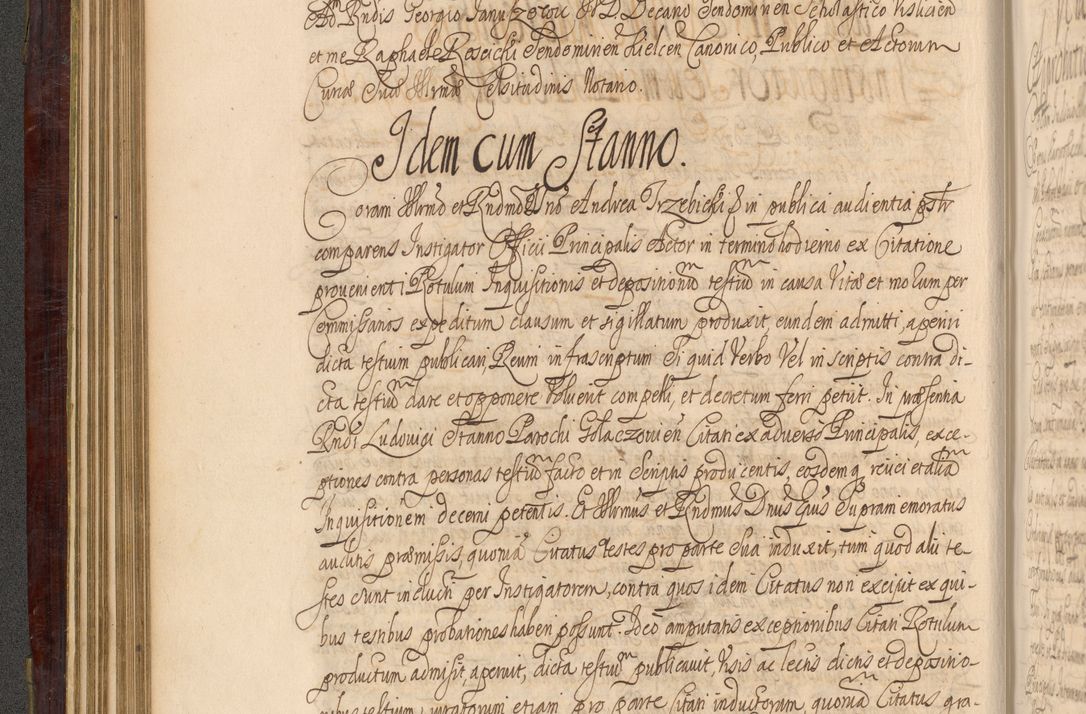 Adm Rndis Georgio Januszowic V. J. D. Decano Sendomirien Scholastico Vislicien
et me Raphaele Roscicki Sendomirien Kielcen Canonico, Publico et Actorum
Curiæ Suæ Illrmæ Celsitudinis Notario.
Idem cum Stanno.
Coram Illrmo et Rndmo Dno Andrea Trzebicki E in publica audientia pstr
comparens Instigator Officii Principalis Actor in termino hodierno ex Citatione
provenienti Rotulum Inquisitionis et depositionum testium in causa Vitæ et morum per
Commissarios expeditum clausum et sigillatum produxit, eundem admitti, aperiri
dicta testium publicari, Reum infrascriptum Si quid Verbo Vel in scriptis contra di-
cta testium dare et opponere Voluerit compelli, et decretum ferri petiit. In præsentia
Rndi Ludovici Stanno Parochi Golaczovien Citati ex adverso Principalis, exce-
ptiones contra personas testium facto et in Scriptis producentis, eosdemq reiici et aliam
Inquisitionem decerni petentis. Et Illrmus et Rndmus Dnus Epus Supramemoratus
auditis præmissis, quoniam Citatus testes pro parte Sua induxit, tum quod alii te-
stes sunt inducti per Instigatorem, contra quos idem Citatus non excipit ex qui-
bus testibus probationes haberi possunt. Ideo amputatis exceptionibus Citati Rotulum
productum admisit, aperuit, dicta testium publicavit, Visis ac lectis dictis et depositio-
nibus testium, iuratorum etiam pro parte Citati inductorum, quoniam Citatus gra-